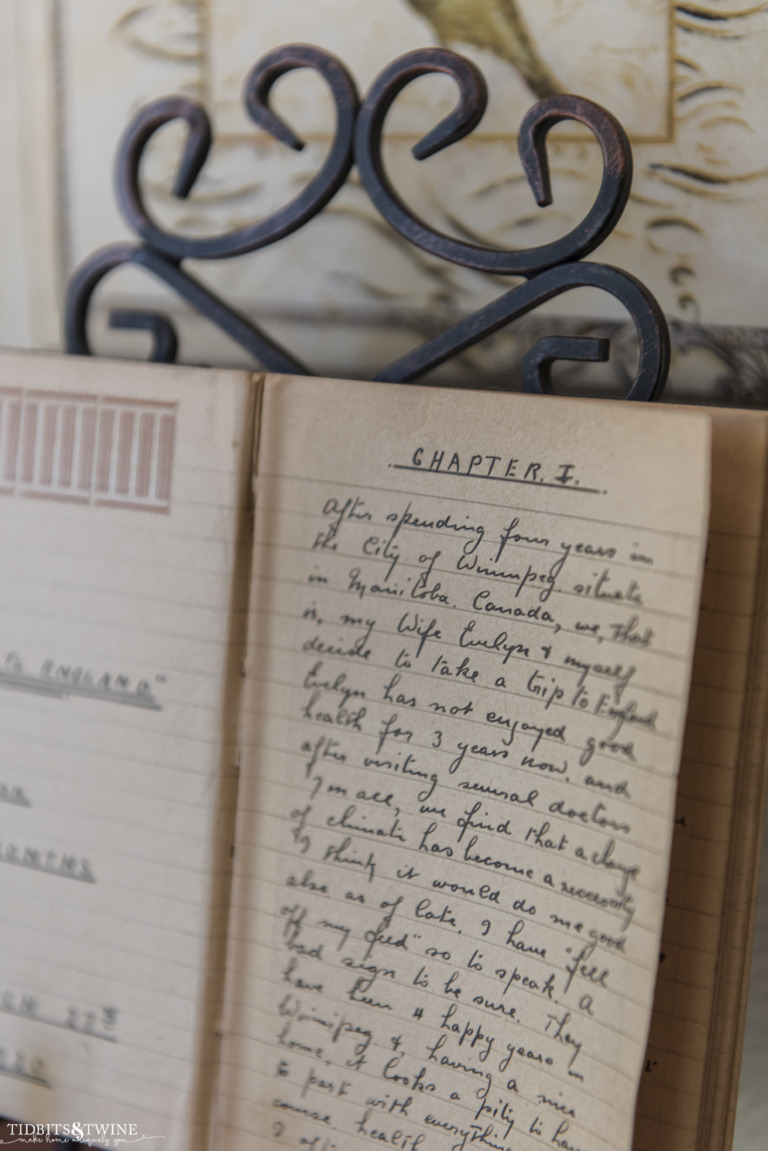 To ENGLAND"
MONTHS
CHAPTER. I.
After spending four years in
the City of Winnipeg, situate
in Manitoba. Canada, we, that
is, my Wife Evelyn & myself
decide to take a trip to England
Evelyn has not enjoyed good
health for 3 years now, and
after visiting several doctors
in all, we find that a change
of climate has become a necessity
I think it would do me good
also as of late, I have "fell
off my feed" so to speak. A
bad sign to be sure. They
have been 4 happy years in
Winnipeg &, having a nice
home, it looks a pity to have
to part with everything
course health
TIDBITS&TWINE
make home uniquely you